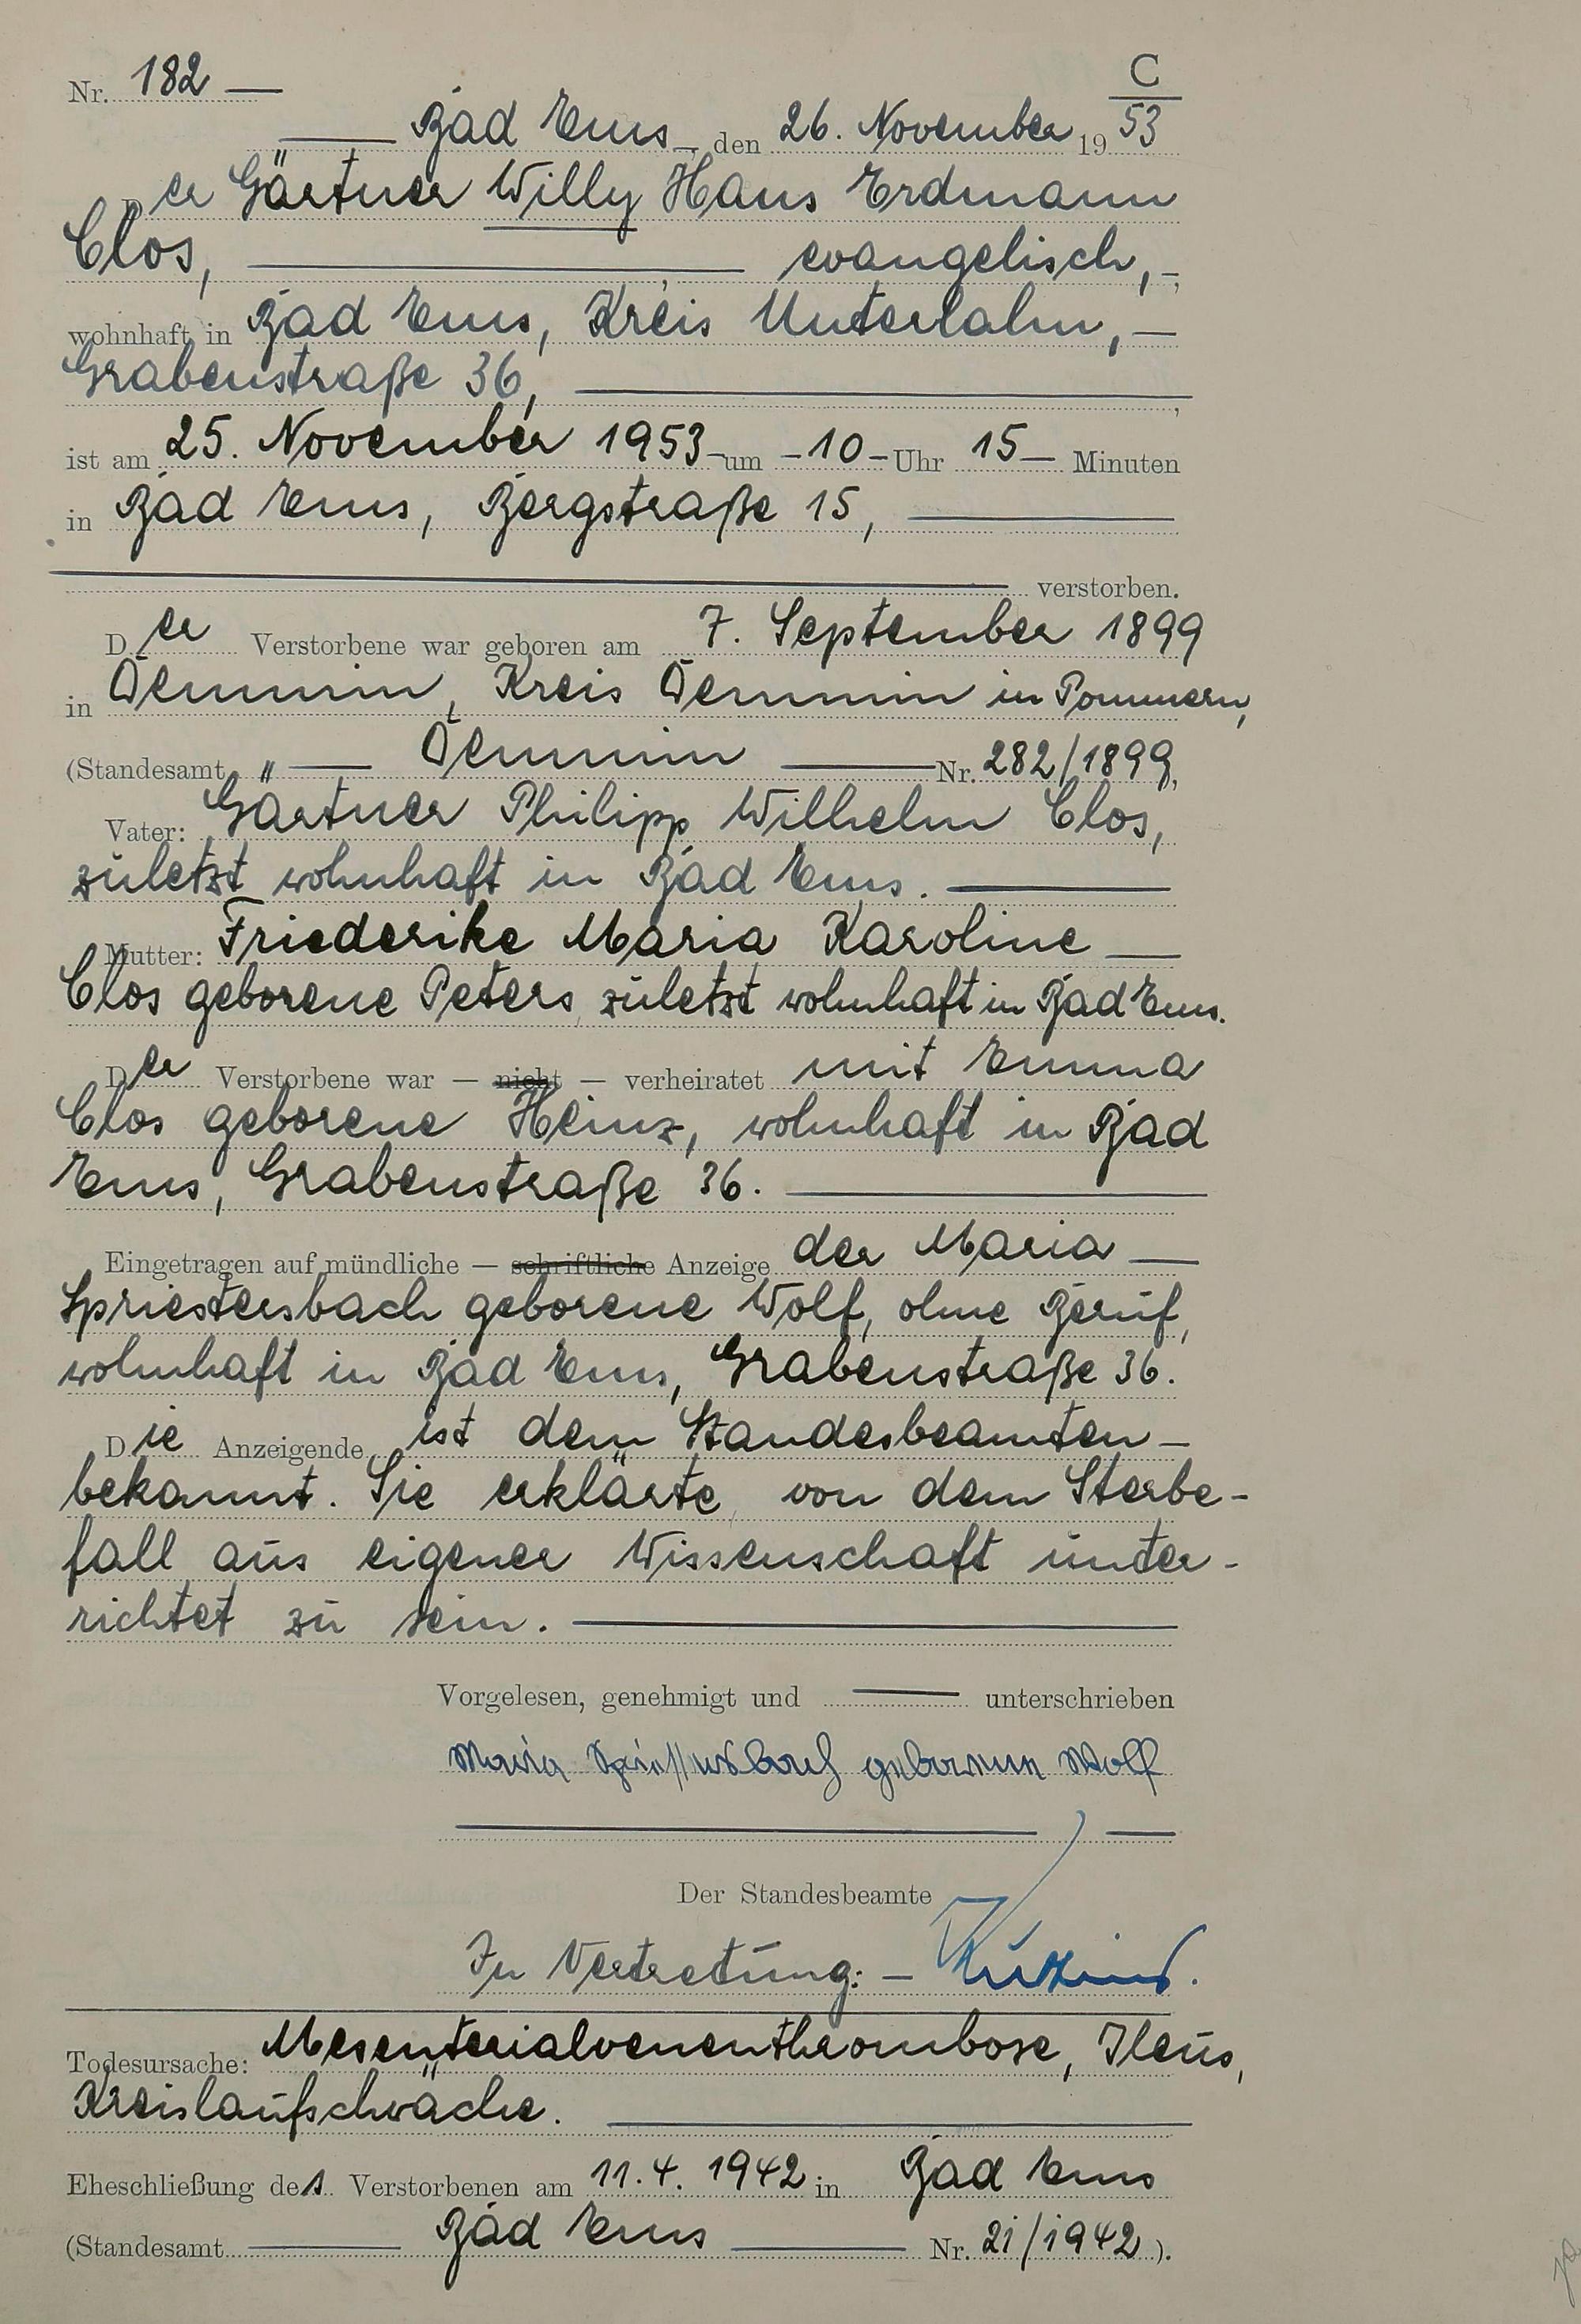 C
Nr. 182 —
— Bad Ems —, den 26. November 1953
Der Gärtner Willy Hans Erdmann
Clos, — evangelisch, —
wohnhaft in Bad Ems, Kreis Unterlahn, —
Grabenstraße 36, —
ist am 25. November 1953 — um — 10 — Uhr 15 — Minuten
in Bad Ems, Bergstraße 15, —
— verstorben.
Der Verstorbene war geboren am 7. September 1899
in Demmin, Kreis Demmin in Pommern,
(Standesamt " — Demmin — Nr. 282/1899,
Vater: Gärtner Philipp Wilhelm Clos,
zuletzt wohnhaft in Bad Ems. —
Mutter: Friederike Maria Karoline —
Clos geborene Peters, zuletzt wohnhaft in Bad Ems.
Der Verstorbene war — nicht — verheiratet mit Emma
Clos geborene Heinz, wohnhaft in Bad
Ems, Grabenstraße 36. —
Eingetragen auf mündliche — schriftliche Anzeige der Maria —
Spriestersbach geborene Wolf, ohne Beruf,
wohnhaft in Bad Ems, Grabenstraße 36.
Die Anzeigende ist dem Standesbeamten —
bekannt. Sie erklärte, von dem Sterbe-
fall aus eigener Wissenschaft unter-
richtet zu sein. —
Vorgelesen, genehmigt und — unterschrieben
Maria Spriestersbach geborene Wolf
Der Standesbeamte
In Vertretung: —
Todesursache: Mesenterialvenenthrombose, Ileus,
Kreislaufschwäche. —
Eheschließung des Verstorbenen am 11.4.1942 in Bad Ems
(Standesamt — Bad Ems — Nr. 21/1942).